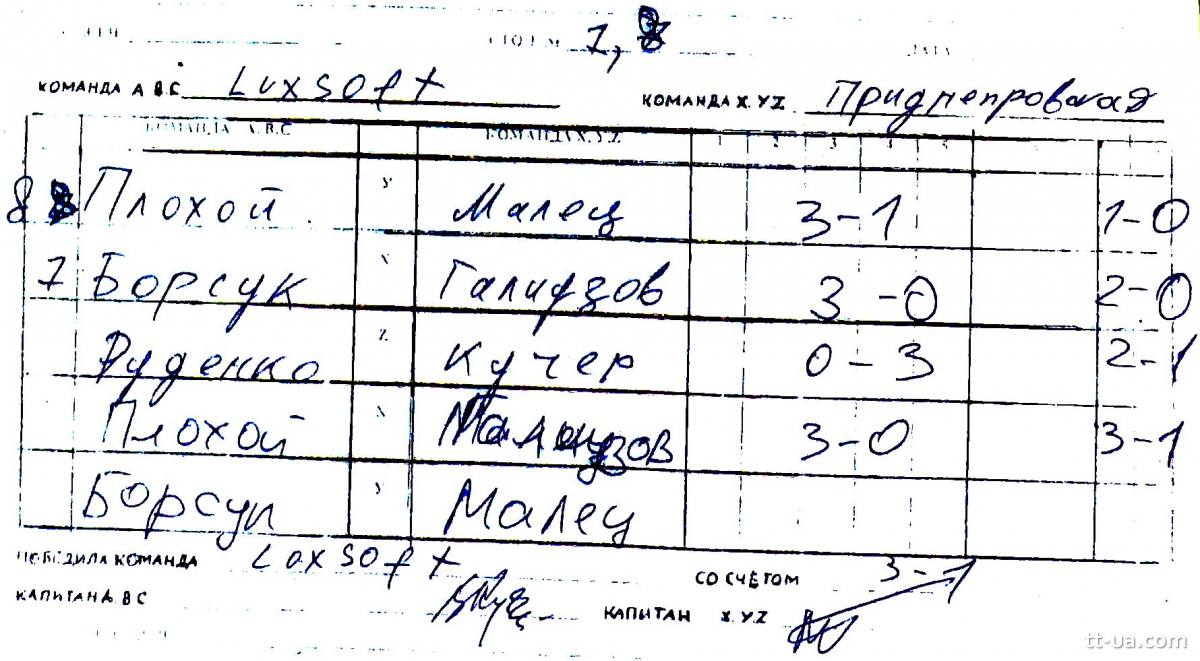 СТОЛ № 7, 8 ДАТА
КОМАНДА А В.С Luxsoft КОМАНДА X.YZ Приднепровская
КОМАНДА А.В.С КОМАНДА X.Y.Z 1 2 3 4 5
8 Плохой У Малец 3-1 1-0
7 Борсук X Галидзов 3-0 2-0
Руденко Z Кучер 0-3 2-1
Плохой X 3-0 3-1
Борсук У Малец
ПОБЕДИЛА КОМАНДА Luxsoft СО СЧЁТОМ 3-1
КАПИТАН А. ВС КАПИТАН X.YZ
tt-ua.com